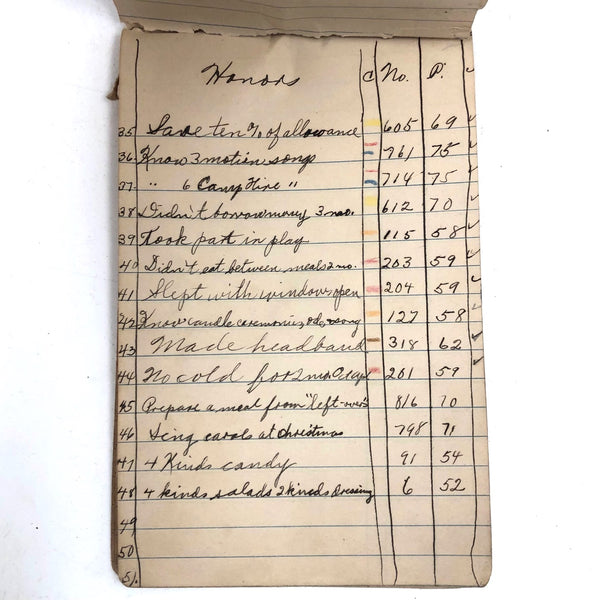 Honors C No. P.
35 Save ten % of allowance 605 69 ✓
36 Know 3 motion songs 761 75 ✓
37 " 6 Camp Fire " 714 75 ✓
38 Didn't borrow money 3 mo. 612 70 ✓
39 Took part in play 115 58 ✓
40 Didn't eat between meals 2 mo. 203 59 ✓
41 Slept with window open 204 59 ✓
42 Know candle ceremonies song 127 58 ✓
43 Made headband 318 62 ✓
44 No cold for 2 mo. 201 59 ✓
45 Prepare a meal from "left-overs" 816 70
46 Sing carols at Christmas 798 71
47 4 Kinds candy 91 54
48 4 kinds salads 2 kinds Dressing 6 52
49
50
51.